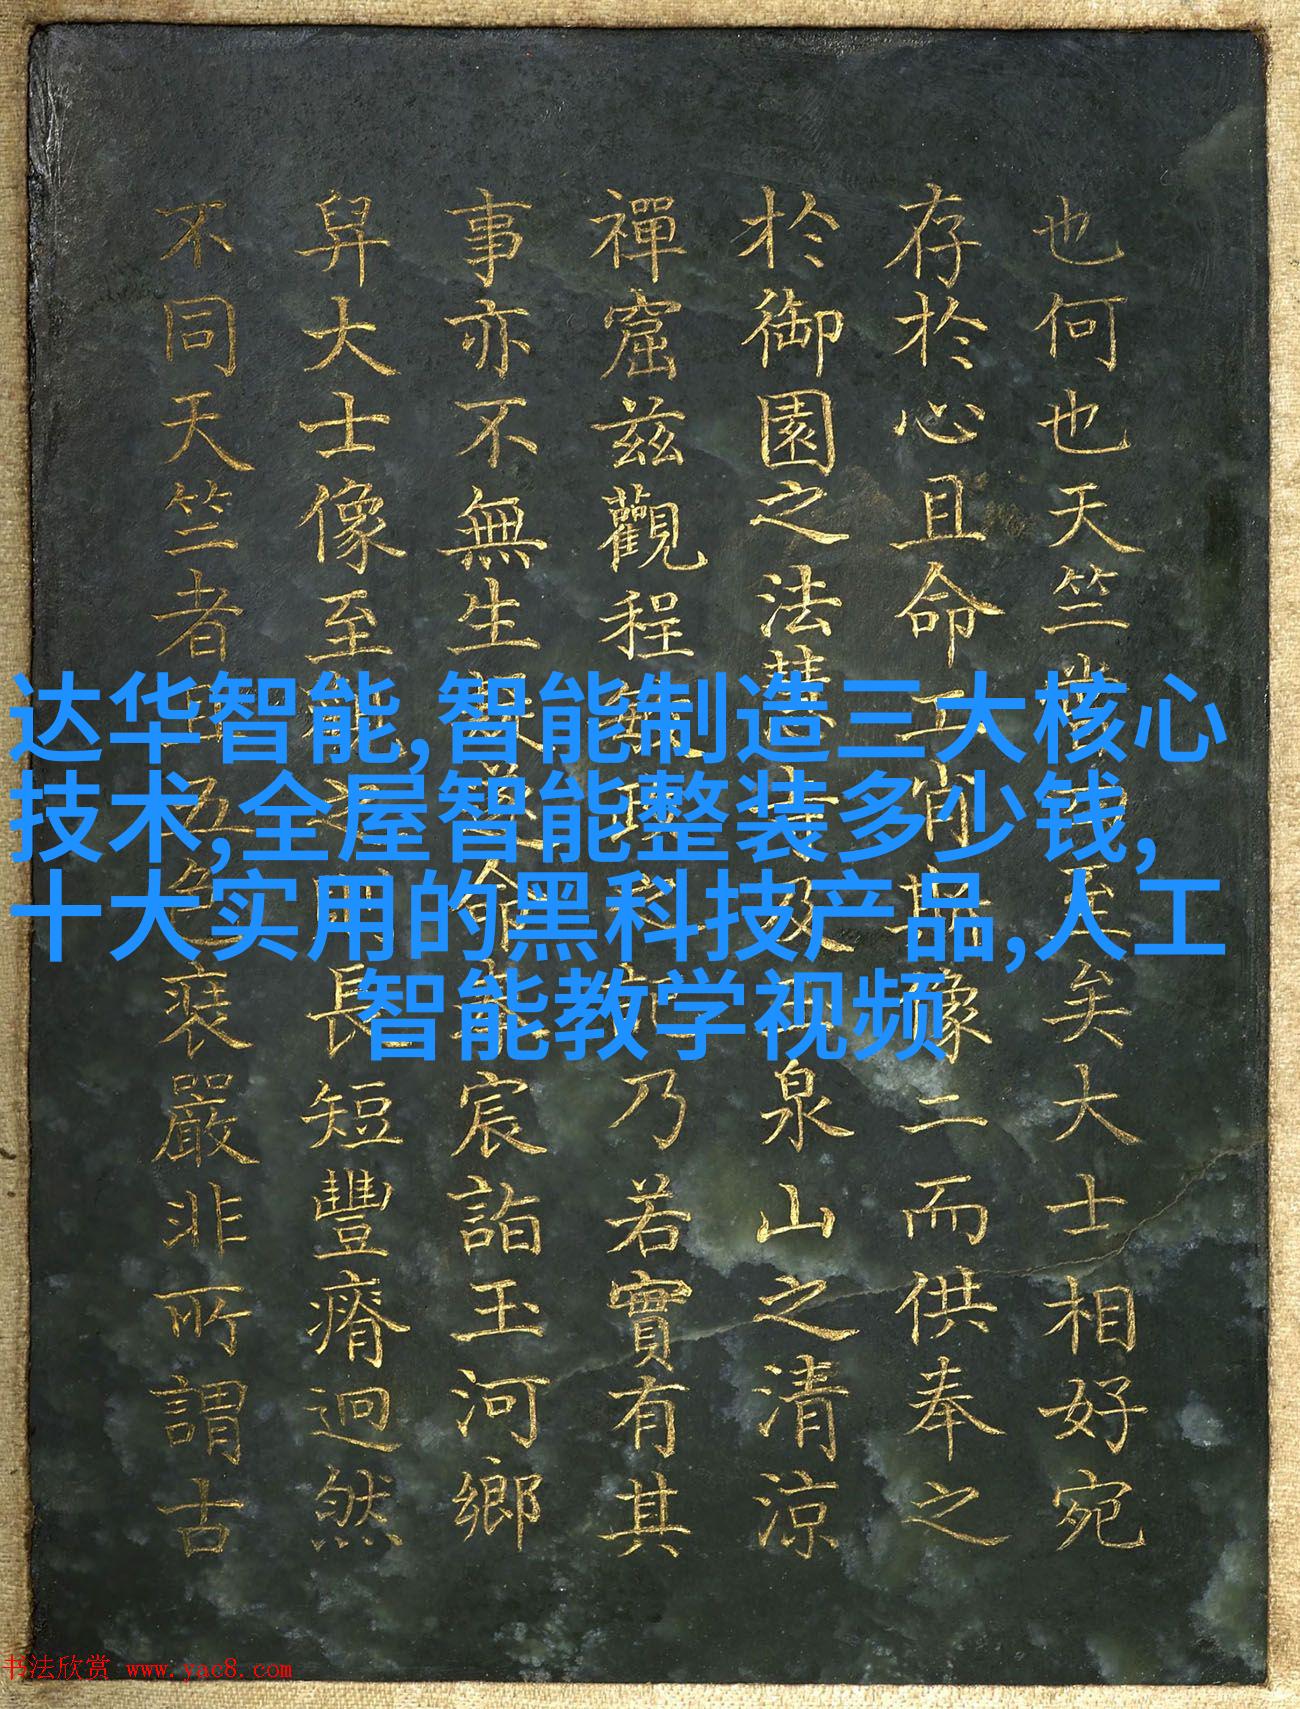 也何也天竺 至矣大士相好宛
存於心且命工肖斯像二而供奉之
於御園之法 寺及 泉山之清涼
禪窟兹觀程 理 乃若實有其
事亦不無生 命 宸詣玉河鄉
舁大士像至 長短豐瘠迥然
不同天竺者 五色裝嚴非所謂古
达华智能,智能制造三大核心
技术,全屋智能整装多少钱,
十大实用的黑科技产品,人工
智能教学视频
书法欣赏 www.yac8.com